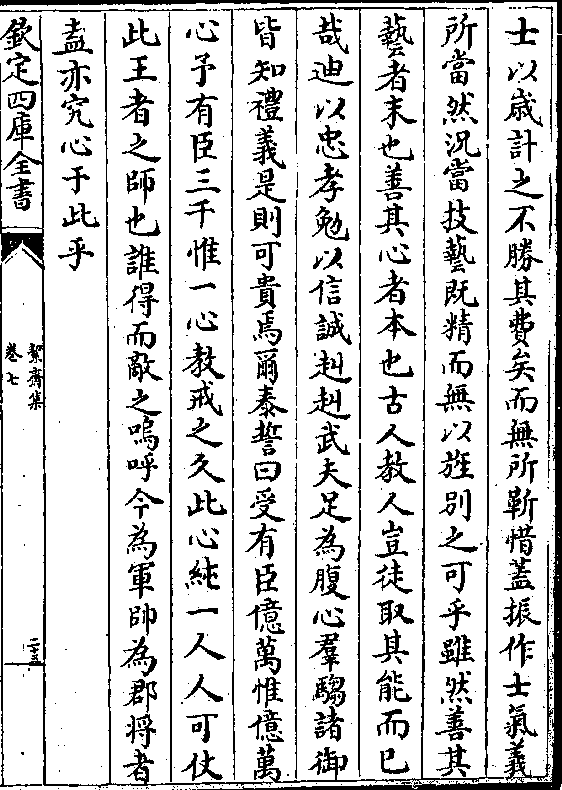 士以歳計之不勝其費矣而無所靳惜蓋振作士氣義
所當然況當技藝既精而無以旌别之可乎雖然善其
藝者末也善其心者本也古人教人豈徒取其能而已
哉迪以忠孝勉以信誠赳赳武夫足為腹心羣騶諸御
皆知禮義是則可貴焉爾泰誓曰受有臣億萬惟億萬
心予有臣三千惟一心教戒之久此心純一人人可仗
此王者之師也誰得而敵之嗚呼今為軍帥為郡将者
盍亦究心于此乎
欽定四庫全書
絜齋集
卷七
二十五